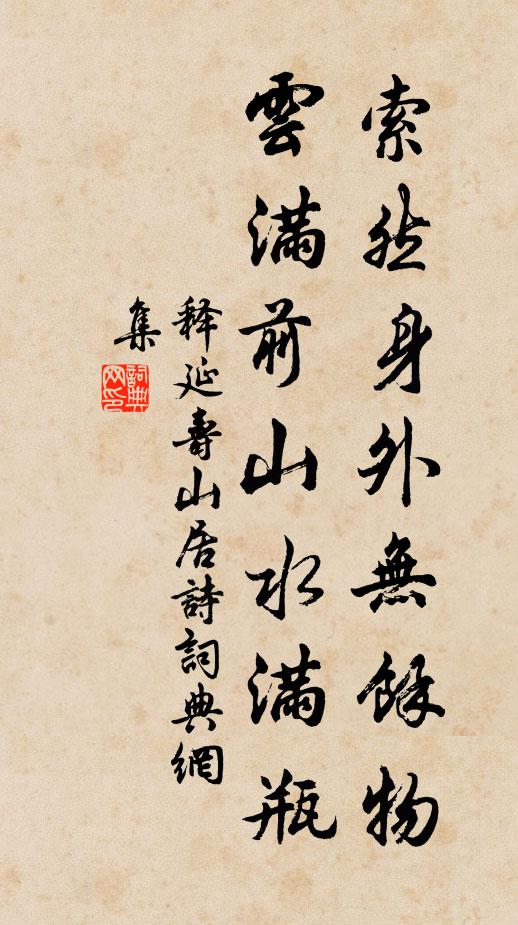 索然身外無餘物
雲滿前山水滿瓶
释延壽山居詩詞典網
集
詞典
网印